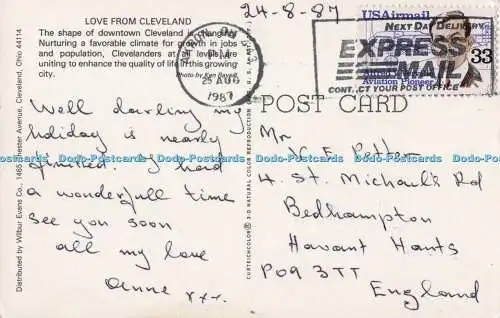 24-8-87
LOVE FROM CLEVELAND
The shape of downtown Cleveland is changing.
Nurturing a favorable climate for growth in jobs
and population, Clevelanders at all levels are
uniting to enhance the quality of life in this growing
city.
Photo by Ken
PM
25 AUG
1987
USAirmail
NEXT DAY DELIVERY
EXPRESS
MAIL
CONTACT YOUR POST OFFICE
33
Aviation Pioneer
Distributed by Wilbur Evans Co., Chester Avenue, Cleveland, Ohio 44114
Well darling my
holiday is nearly
finished. I had
a wonderfull time
see you soon
all my love
Anne xxx
CURTEICHCOLOR® 3-D NATURAL COLOR REPRODUCTION
POST CARD
Mr
V. E. Potter
4. St. Michael's Rd
Bedhampton
Havant Hants
PO9 3TT
England
Dodo-Postcards Dodo-Postcards Dodo-Postcards Dodo-Postcards Dodo-Postcards